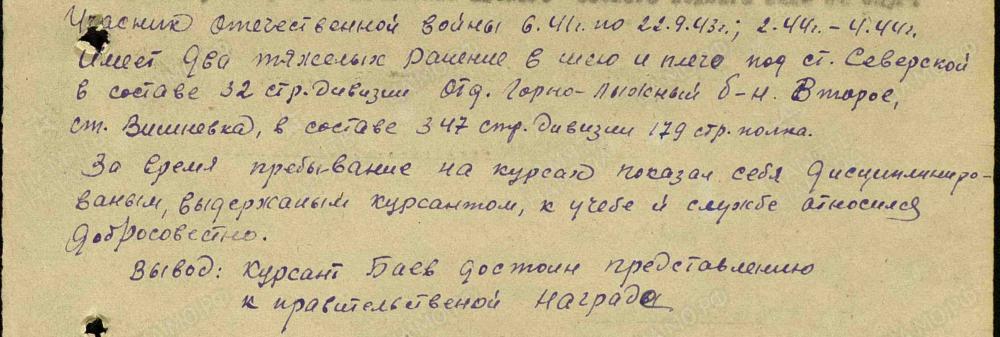 Учасник отечественной войны 6.41г. по 22.9.43г.; 2.44г. – 4.44г.
Имеет два тяжелых ранение в шею и плечо под ст. Северской
в составе 32 стр. дивизии отд. Горно-лыжный б-н. Второе,
ст. Вишневка, в составе 347 стр. дивизии 179 стр. полка.
За время пребывание на курсах показал себя дисциплиниро-
ваным, выдержаным курсантом, к учебе и службе относился
добросовестно.
Вывод: курсант Баев достоин представлению
к правительственой награде